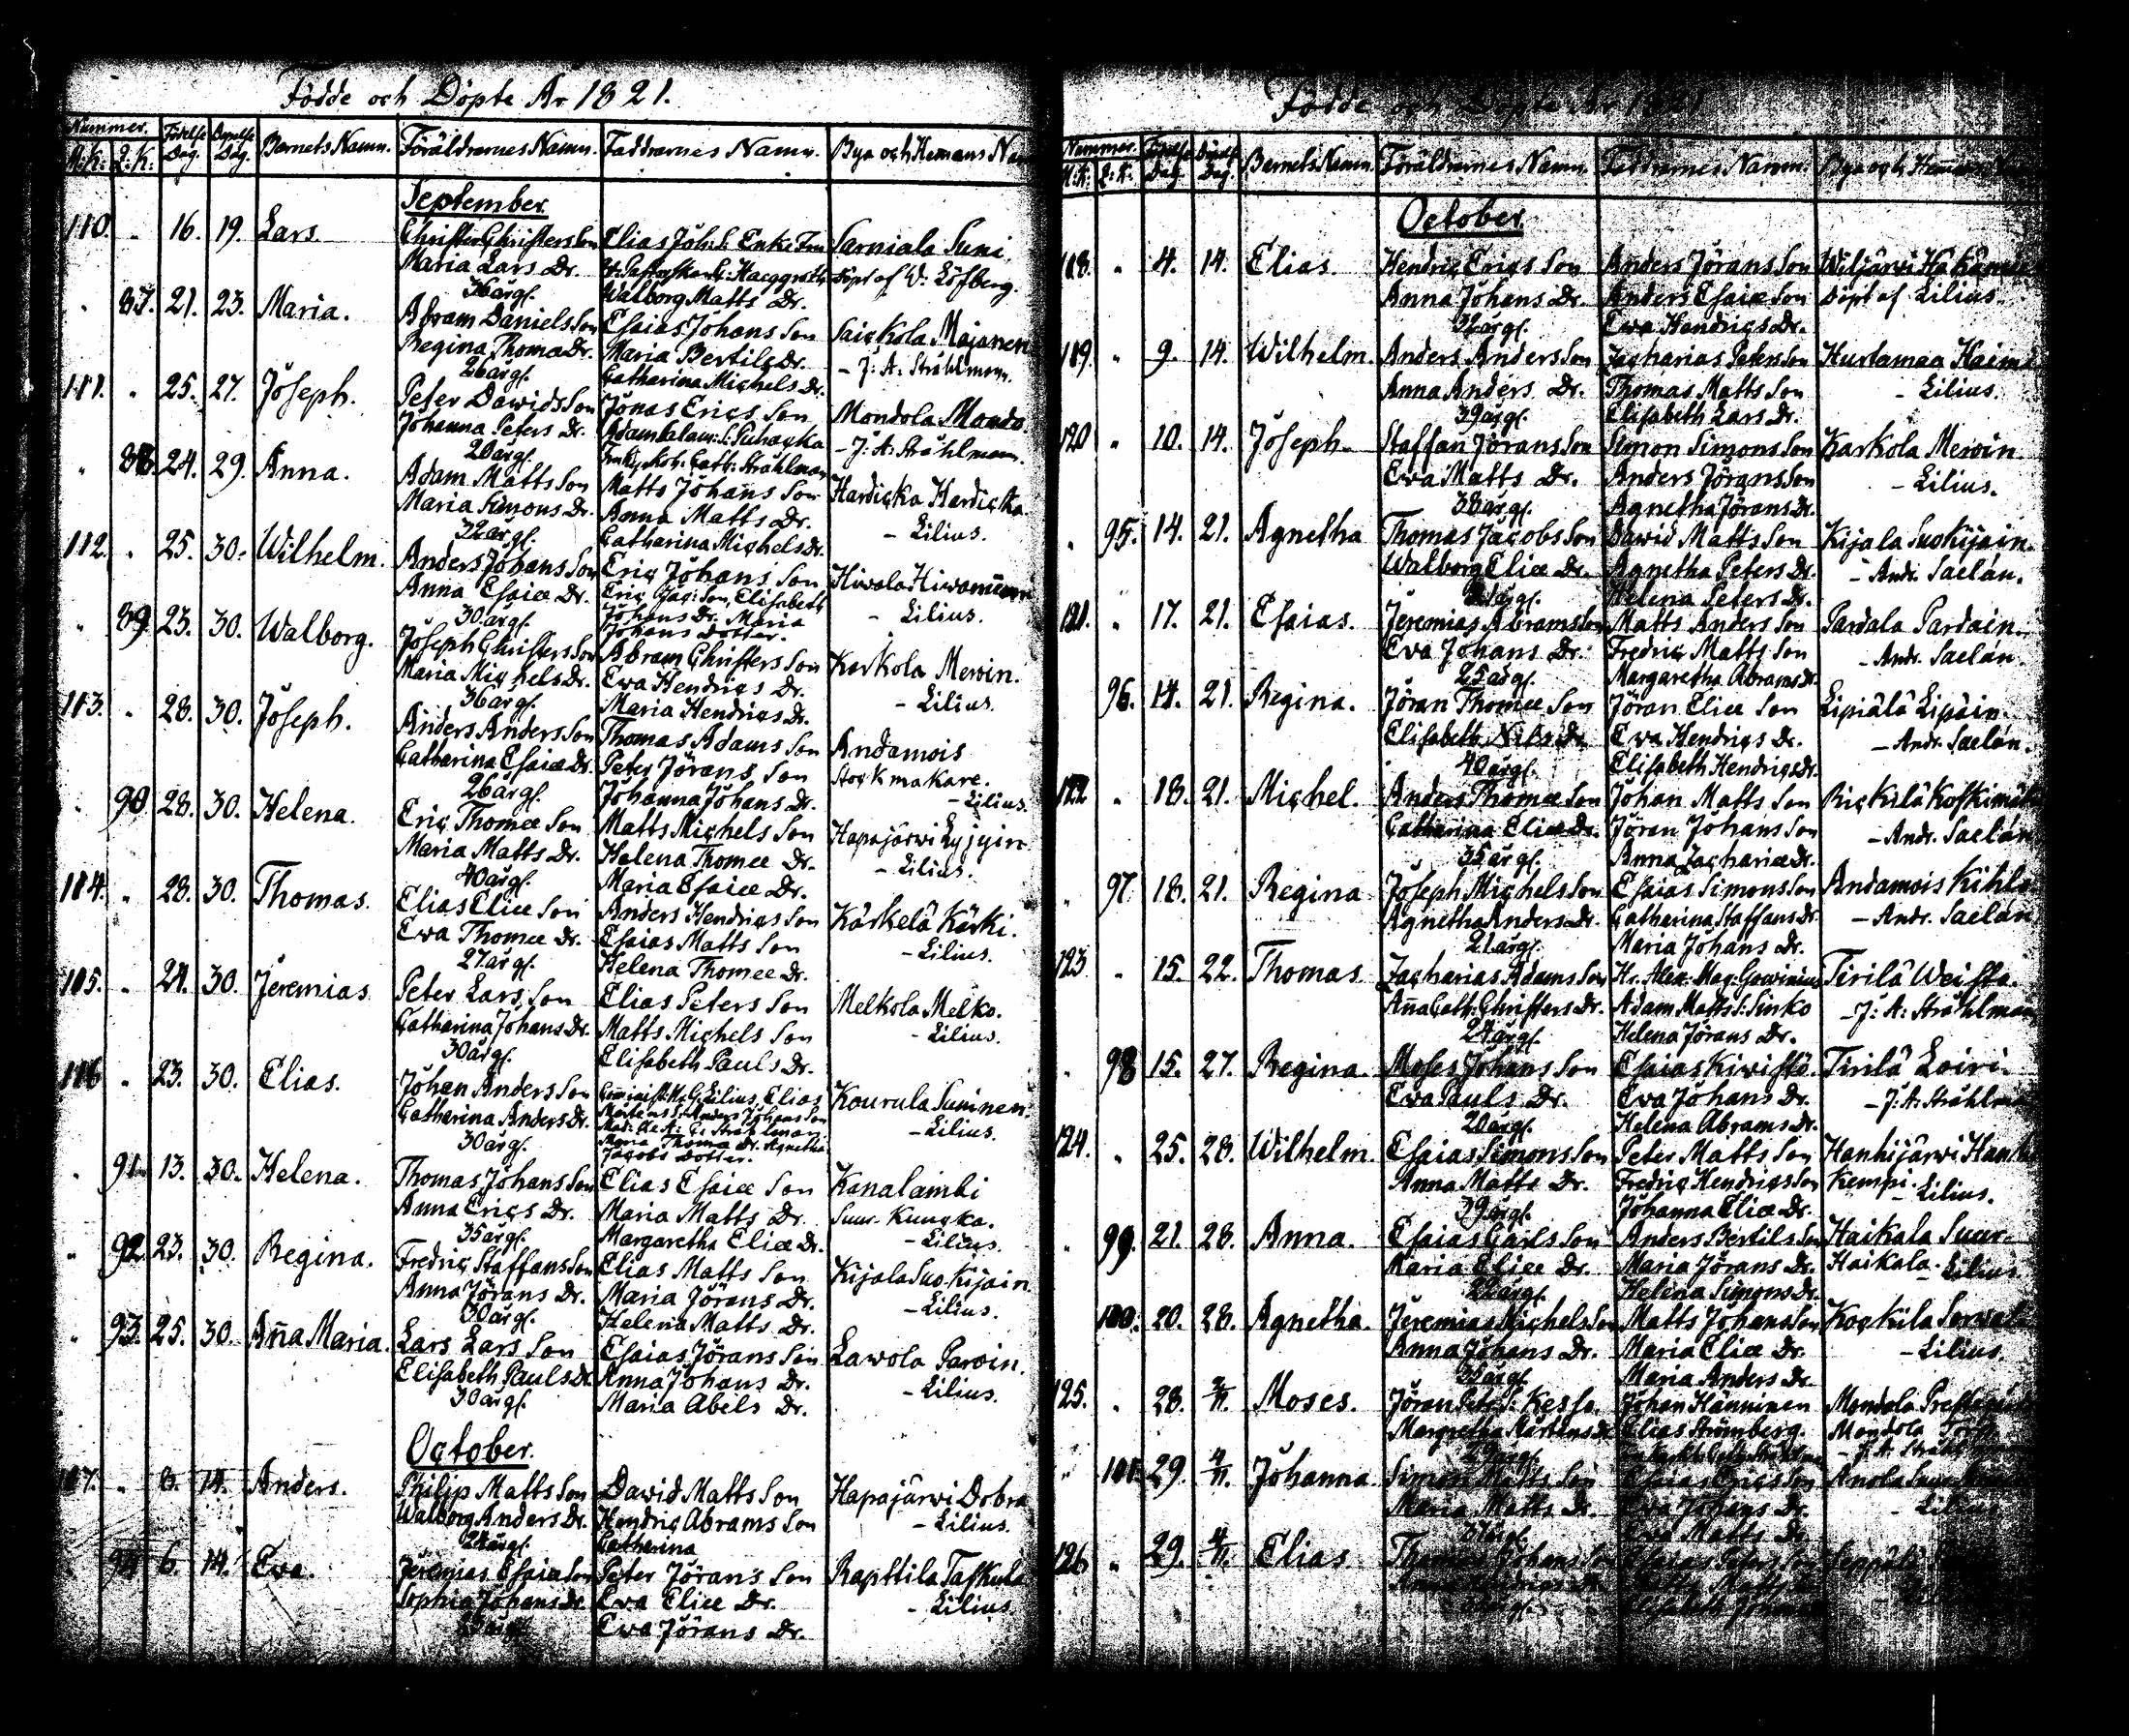 Födde och Döpte År 1821.
Nummer. Födelse Dag. Döpelse Dag. Barnets Namn. Föräldrarnes Namn. Faddrarnes Namn. Bya och Hemans Nam
M:K: Q:K:
September.
110. " 16. 19. Lars. Christer Christers Son Elias Joh:S: Enke Fru Sarniala Suni,
Maria Lars Dr. Haeggroth Döpt af W: Löfberg.
36 år gl. Walborg Matts Dr.
" 87. 21. 23. Maria. Abram Daniels Son Esaias Johans Son Saickola Majanen
Regina Thomæ Dr. Maria Bertils Dr. - J: A: Stråhlmann.
26 år gl. Catharina Michels Dr.
111. " 25. 27. Joseph. Peter Dawids Son Jonas Erics Son Mondola Mondo.
Johanna Peters Dr. - J: A: Stråhlmann.
20 år gl. Stråhlman
" 88. 24. 29. Anna. Adam Matts Son Matts Johans Son Hardicka Hardicka
Maria Simons Dr. Anna Matts Dr. - Lilius.
32 år gl. Catharina Michels Dr.
112. " 25. 30. Wilhelm. Anders Johans Son Eric Johans Son Hiwola
Anna Esaiæ Dr. Eric Jac: Son, Elisabeth - Lilius.
30 år gl. Johans Dr. Maria
Johans Dotter.
" 89. 23. 30. Walborg. Joseph Christers Son Abram Christers Son Karkola Meroin.
Maria Michels Dr. Ewa Hendrics Dr. - Lilius.
36 år gl. Maria Hendrics Dr.
113. " 28. 30. Joseph. Anders Anders Son Thomas Adams Son Andamois
Catharina Esaiæ Dr. Peter Jörans Son Stockmakare.
26 år gl. Johanna Johans Dr. - Lilius.
" 90 28. 30. Helena. Eric Thomæ Son Matts Michels Son Hapajärwi
Maria Matts Dr. Helena Thomæ Dr. - Lilius.
40 år gl. Maria Esaiæ Dr.
114. " 28. 30. Thomas. Elias Eliæ Son Anders Hendrics Son Kärkelä Kärki.
Ewa Thomæ Dr. Esaias Matts Son - Lilius.
27 år gl. Helena Thomæ Dr.
115. " 24. 30. Jeremias Peter Lars Son Elias Peters Son Melkola Melko.
Catharina Johans Dr. Matts Michels Son - Lilius.
30 år gl. Elisabeth Pauls Dr.
116 " 23. 30. Elias. Johan Anders Son Lilius, Elias Kourula Suninen.
Catharina Anders Dr. Mårtens S: Anders Johans Son - Lilius.
30 år gl. Maria Thomæ Dr. Agnetha
Jacobs Dotter.
" 91. 13. 30. Helena. Thomas Johans Son Elias Esaiæ Son Kanalambi
Anna Erics Dr. Maria Matts Dr. Suur-Kuucka.
35 år gl. Margaretha Eliæ Dr. - Lilius.
" 92. 23. 30. Regina. Fredric Staffans Son Elias Matts Son Kijala Suo Kijain
Anna Jörans Dr. Maria Jörans Dr. - Lilius.
30 år gl. Helena Matts Dr.
" 93. 25. 30. Aña Maria. Lars Lars Son Esaias Jörans Son Lawola Parvin.
Elisabeth Pauls Dr. Anna Johans Dr. - Lilius.
30 år gl. Maria Abels Dr.
October.
117. " 8. 14. Anders. Philip Matts Son Dawid Matts Son Hapajärwi Dobra
Walborg Anders Dr. Hendric Abrams Son - Lilius.
24 år gl. Catharina
" 94 6. 14. Eva. Jeremias Esaiæ Son Peter Jörans Son Rapttila Taskula
Sophia Johans Dr. Ewa Eliæ Dr. - Lilius.
Ewa Jörans Dr.
Födde och Döpte År 1821
Nummer. Födelse Dag. Döpelse Dag. Barnets Namn. Föräldrarnes Namn. Faddrarnes Namn. Bya och Hemans
M:K: Q:K:
October.
118. " 4. 14. Elias. Hendric Erics Son Anders Jörans Son Wiljärwi
Anna Johans Dr. Anders Esaiæ Son Döpt af Lilius.
32 år gl. Ewa Hendrics Dr.
119. " 9 14. Wilhelm. Anders Anders Son Zacharias Peters Son Hurtamaa
Anna Anders Dr. Thomas Matts Son - Lilius.
39 år gl. Elisabeth Lars Dr.
120 " 10. 14. Joseph Staffan Jörans Son Simon Simons Son Karkola Meroin.
Ewa Matts Dr. Anders Jörans Son - Lilius.
38 år gl. Agnetha Jörans Dr.
" 95. 14. 21. Agnetha Thomas Jacobs Son Dawid Matts Son Kijala Suo Kijain.
Walborg Eliæ Dr. Agnetha Peters Dr. - Andr. Saelan.
Helena Peters Dr.
121. " 17. 21. Esaias. Jeremias Abrams Son Matts Anders Son Pardala Pardain.
Eva Johans Dr. Fredric Matts Son - Andr. Saelan.
25 år gl. Margaretha Abrams Dr.
" 96. 14. 21. Regina. Jöran Thomæ Son Jöran Eliæ Son Lipiälä Lipiäin.
Elisabeth Nils Dr. Ewa Hendrics Dr. - Andr. Saelan.
40 år gl. Elisabeth Hendrics Dr.
122 " 18. 21. Michel. Anders Thomæ Son Johan Matts Son Rickilä
Catharina Eliæ Dr. Jöran Johans Son - Andr. Saelan
35 år gl. Anna Zachariæ Dr.
" 97. 18. 21. Regina Joseph Michels Son Esaias Simons Son Andamois Kihl
Agnetha Anders Dr. Catharina Staffans Dr. - Andr. Saelan
21 år gl. Maria Johans Dr.
123 " 15. 22. Thomas. Zacharias Adams Son Hr. Alex. Mag: Gowinius Tirilä Weista.
Aña Cath: Christers Dr. Adam Matts S: Sinko - J: A: Stråhlman
24 år gl. Helena Jörans Dr.
" 98 15. 27. Regina. Moses Johans Son Esaias Kiwistö. Tirilä Loiri.
Ewa Pauls Dr. Ewa Johans Dr. - J: A: Stråhlma
20 år gl. Helena Abrams Dr.
124. " 25. 28. Wilhelm. Esaias Simons Son Peter Matts Son Hanhijärwi
Anna Matts Dr. Fredric Hendrics Son Kempi. - Lilius.
39 år gl. Johanna Eliæ Dr.
" 99. 21. 28. Anna. Esaias Carls Son Anders Bertils Son Haikala Suur
Maria Eliæ Dr. Maria Jörans Dr. Haikala. - Lilius.
22 år gl. Helena Simons Dr.
" 100. 20. 28. Agnetha. Jeremias Michels Son Matts Johans Son Kockila
Anna Johans Dr. Maria Eliæ Dr. - Lilius.
35 år gl. Maria Anders Dr.
125. " 28. 2/11. Moses. Jöran Pets S: Kesse. Johan Hänninen Mondola
Margretha Mårtens Dr. Elias Strömberg. Mondola Torp.
29 år gl.
" 101. 29. 4/11. Johanna Simon Matts Son Esaias Erics Son Anola
Maria Matts Dr. Ewa Johans Dr. - Lilius
Ewa Matts Dr.
126 " 29. 4/11. Elias Thomas Johans Son Esaias Peters Son